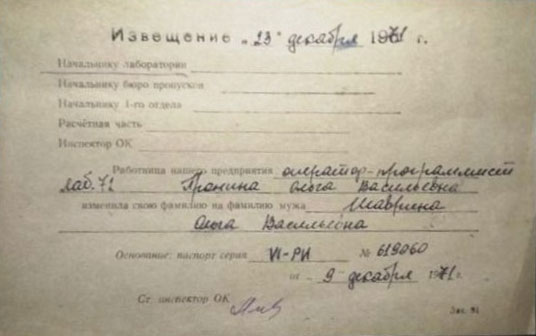 Извещение „23" декабря 1971 г.
Начальнику лаборатории
Начальнику бюро пропусков
Начальнику 1-го отдела
Расчётная часть
Инспектор ОК
Работница нашего предприятия оператор-программист
лаб. 72 Пронина Ольга Васильевна
изменила свою фамилию на фамилию мужа Шаврина
Ольга Васильевна
Основание: паспорт серия VI-РИ № 619060
от 9 декабря 1971 г.
Ст. инспектор ОК
Зак. 91